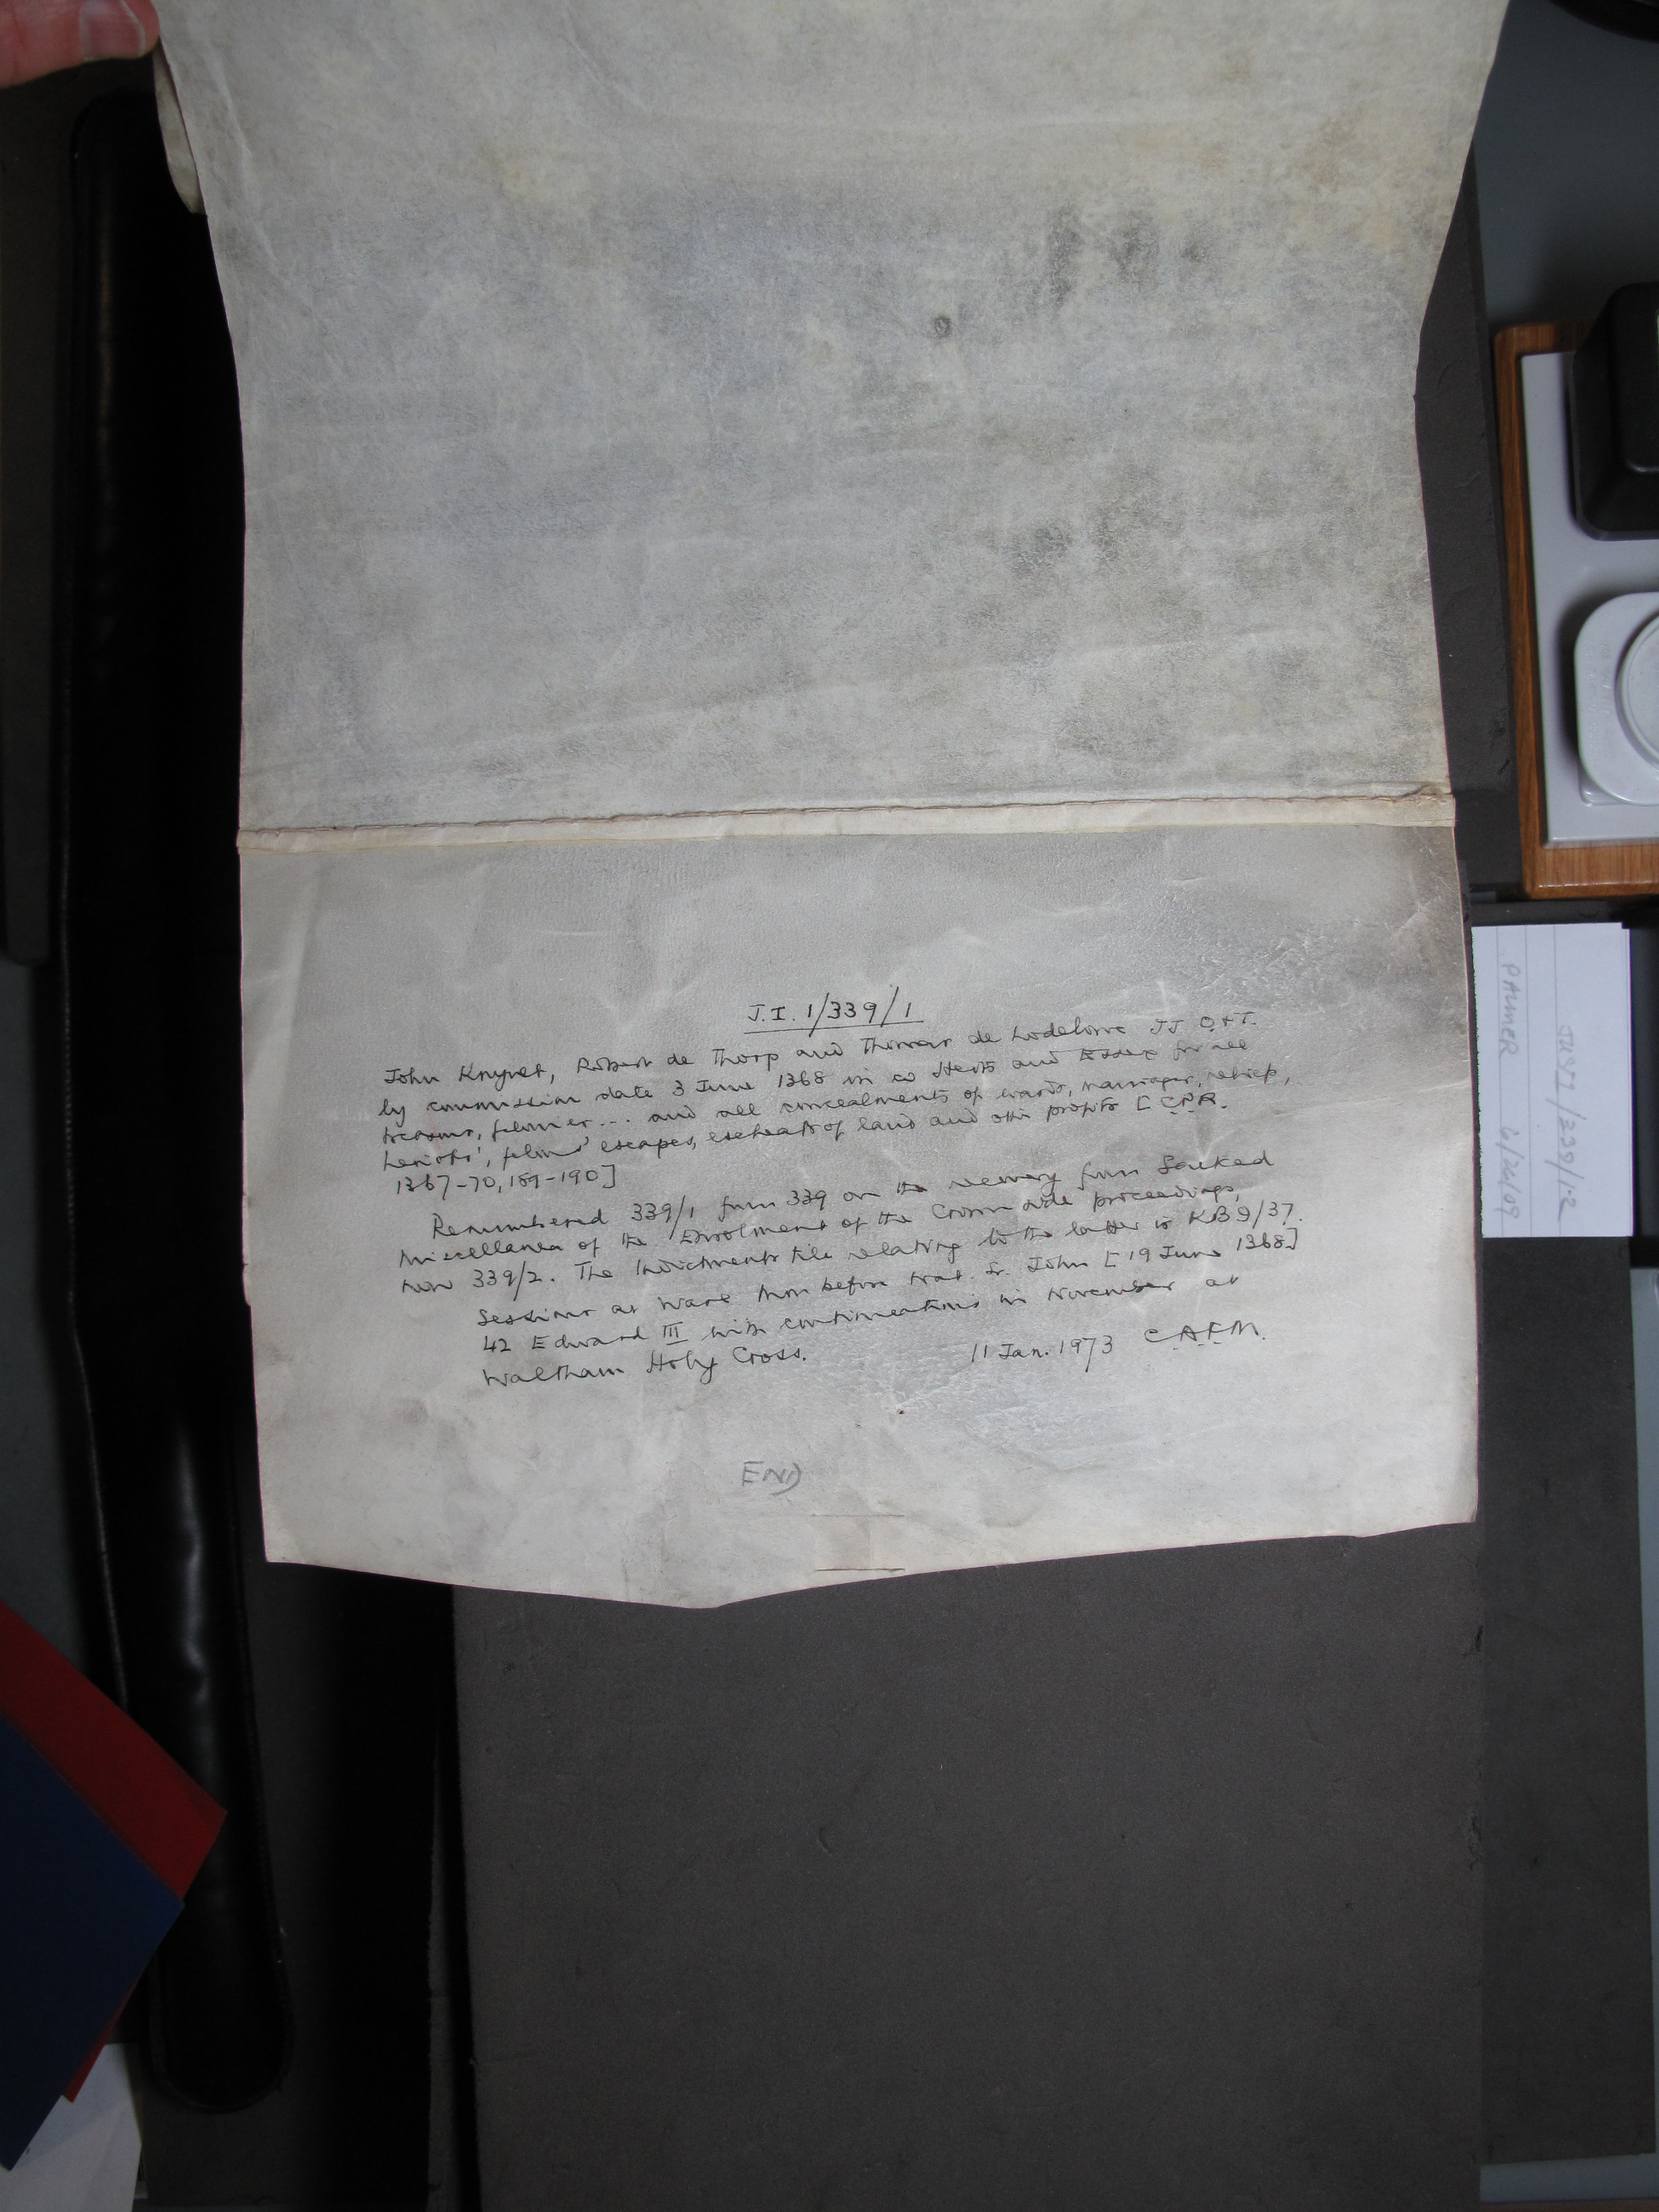 J.I. 1/339/1
John Knyvet, Robert de Thorp and Thomas de Lodelowe JJ O & T.
by commission date 3 June 1368 in co Herts and Essex for all
treasons, felonies ... and all concealments of wards, marriages, reliefs,
heriots, felons' escapes, escheats of land and other profits [C.P.R.
1367-70, 189-190]
Renumbered 339/1 from 339 on the recovery from Sorted
Miscellanea of the Enrolment of the Crown side proceedings,
now 339/2. The Indictments file relating to the latter is KB9/37.
Sessions at Ware Mon before Nat. St. John [19 June 1368]
42 Edward III with continuations in November at
Waltham Holy Cross.
11 Jan. 1973 C.A.F.M.
END
JUST1/339/1-2
PALMER 6/26/09